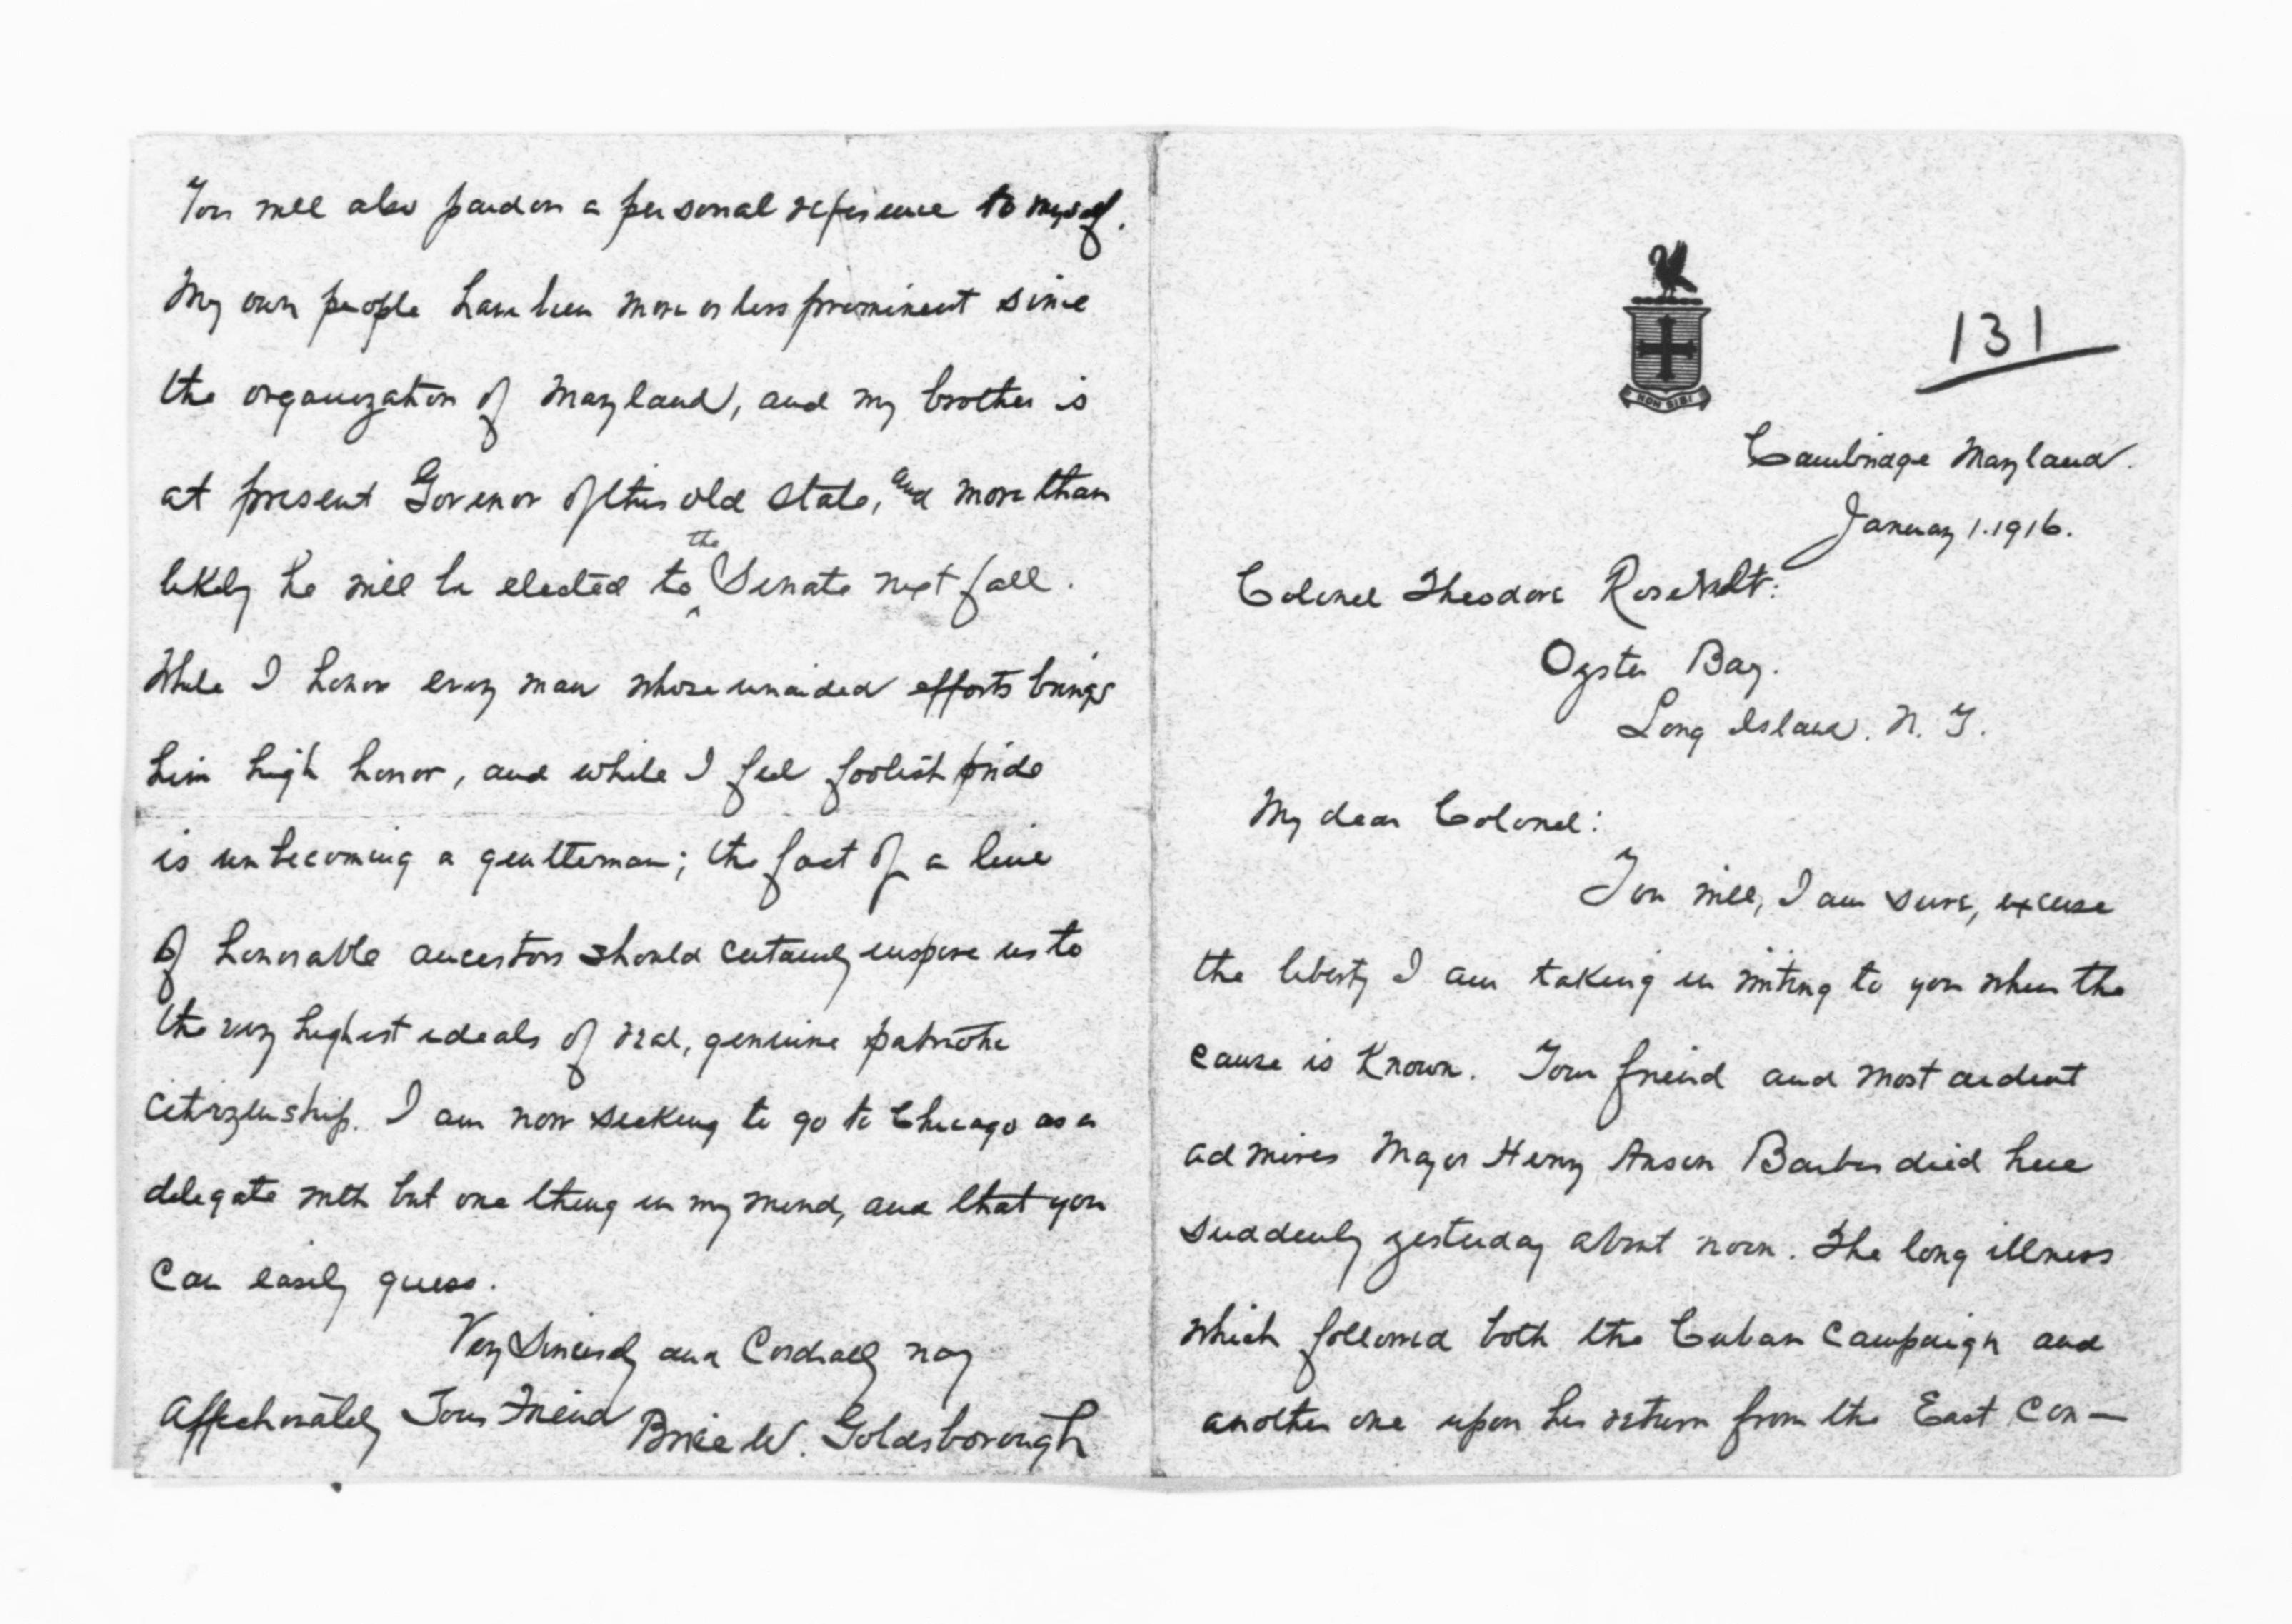 NON SIBI
131
Cambridge Maryland.
January 1. 1916.
Colonel Theodore Rosevelt:
Oyster Bay.
Long Island. N. Y.
My dear Colonel:
You will, I am sure, excuse
the liberty I am taking in writing to you when the
cause is known. Your friend and most ardent
admirer Major Henry Anson Barber died here
suddenly yesterday about noon. The long illness
which followed both the Cuban Campaign and
another one upon his return from the East con—
You will also pardon a personal reference to myself.
My own people have been more or less prominent since
the organization of Maryland, and my brother is
at present Govenor of this old state, and more than
likely he will be elected to the Senate next fall.
While I honor every man whose unaided efforts brings
him high honor, and while I feel foolish pride
is unbecoming a gentleman; the fact of a line
of honorable ancestors should certainly inspire us to
the very highest ideals of real, genuine patriotic
citizenship. I am now seeking to go to Chicago as a
delegate with but one thing in my mind, and that you
can easily guess.
Very Sincerely and Cordially nay
affectionately Your Friend
Brice W. Goldsborough